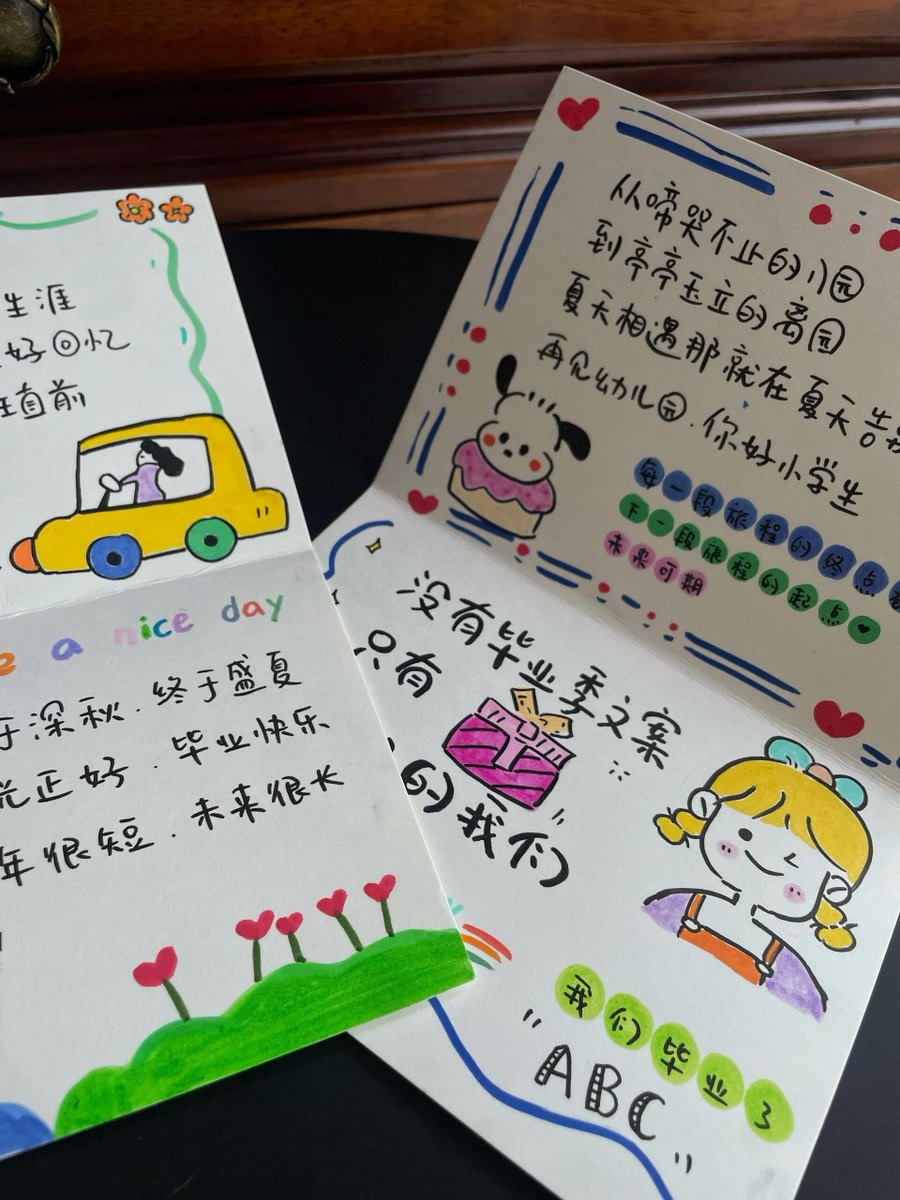 生涯
好回忆
直前
e a nice day
于深秋.终于盛夏
光正好.毕业快乐
年很短.未来很长
从啼哭不止的入园
到亭亭玉立的离园
夏天相遇那就在夏天告别
再见幼儿园.你好小学生
每一段旅程的终点都
下一段旅程的起点
未来可期
没有毕业季文案
只有
的我们
我们毕业了
"ABC"